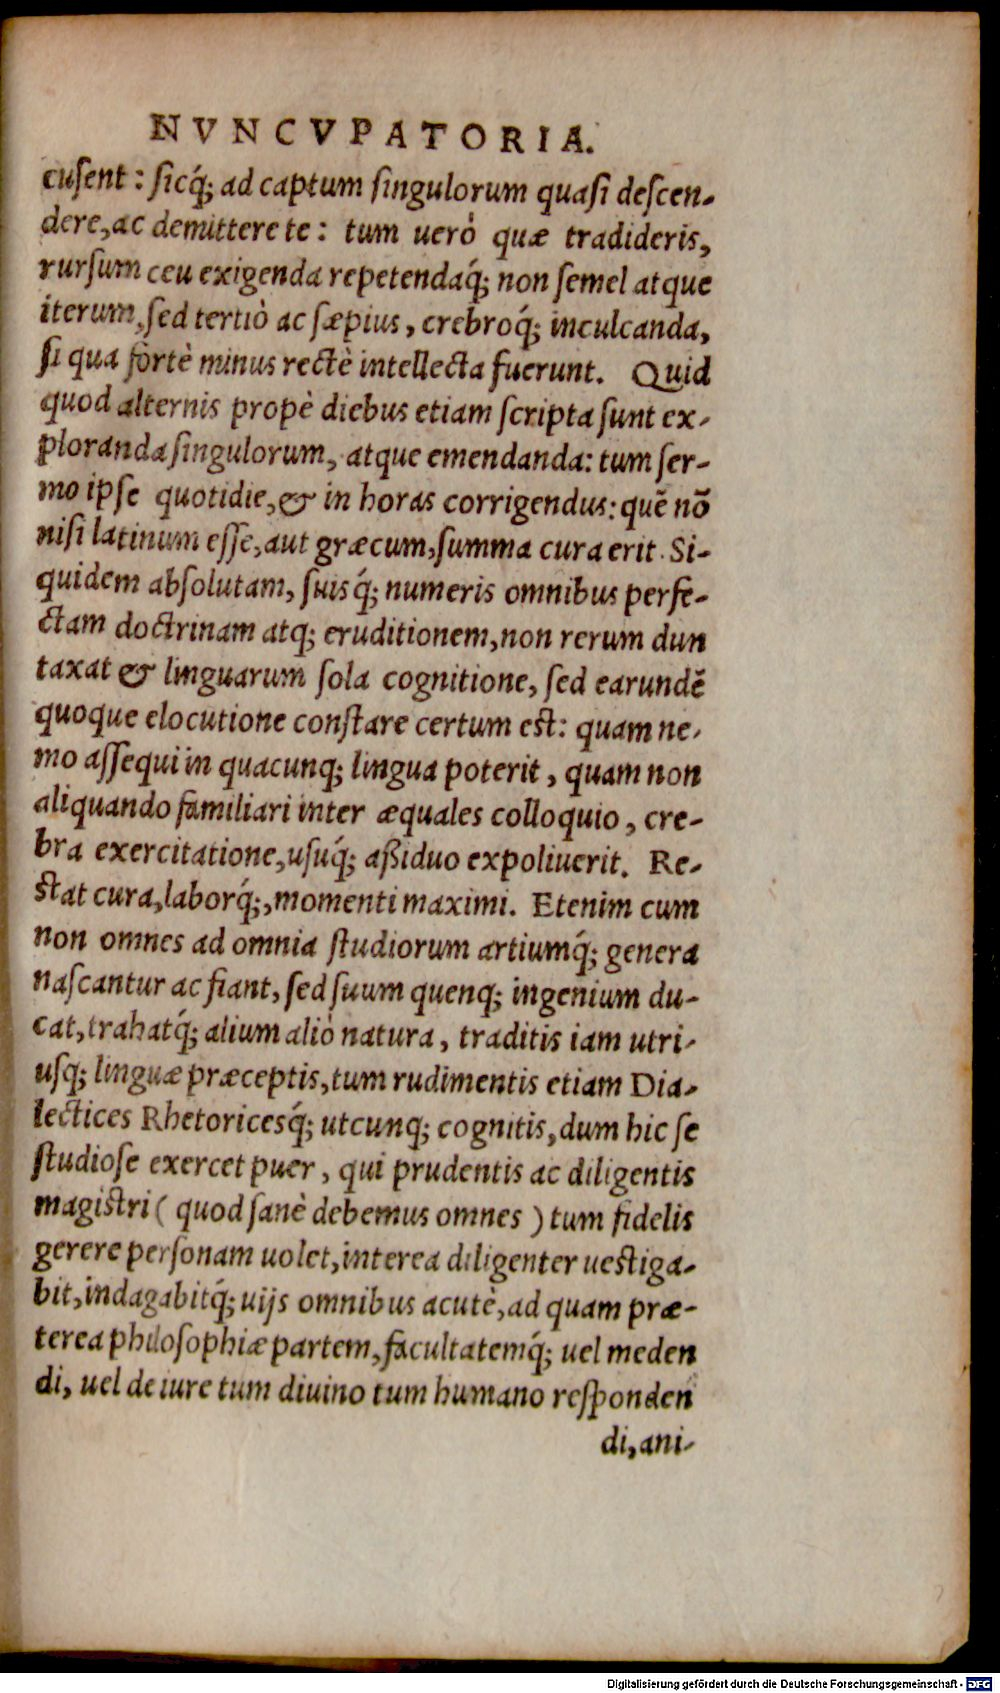 NVNCVPATORIA.
cuſent: ſicq́; ad captum ſingulorum quaſi deſcen-
dere, ac demittere te: tum uerò quæ tradideris,
rurſum ceu exigenda repetendaq́; non ſemel atque
iterum, ſed tertiò ac ſæpius, crebroq́; inculcanda,
ſi qua fortè minus rectè intellecta fuerunt. Quid
quod alternis propè diebus etiam ſcripta ſunt ex-
ploranda ſingulorum, atque emendanda: tum ſer-
mo ipſe quotidie, & in horas corrigendus: quē nō
niſi latinum eſſe, aut græcum, ſumma cura erit. Si-
quidem abſolutam, ſuisq́; numeris omnibus perfe-
ctam doctrinam atq; eruditionem, non rerum dun
taxat & linguarum ſola cognitione, ſed earundē
quoque elocutione conſtare certum est: quam ne-
mo aſſequi in quacunq; lingua poterit, quam non
aliquando familiari inter æquales colloquio, cre-
bra exercitatione, uſuq́; aßiduo expoliuerit. Re-
stat cura, laborq́;, momenti maximi. Etenim cum
non omnes ad omnia ſtudiorum artiumq́; genera
naſcantur ac fiant, ſed ſuum quenq; ingenium du-
cat, trahatq́; alium aliò natura, traditis iam utri-
uſq; linguæ præceptis, tum rudimentis etiam Dia-
lectices Rhetoricesq́; utcunq; cognitis, dum hic ſe
ſtudioſe exercet puer, qui prudentis ac diligentis
magistri (quod ſanè debemus omnes) tum fidelis
gerere perſonam uolet, interea diligenter uestiga-
bit, indagabitq́; uijs omnibus acutè, ad quam præ-
terea philoſophiæ partem, facultatemq́; uel meden
di, uel de iure tum diuino tum humano reſponden
di, ani-
Digitalisierung gefördert durch die Deutsche Forschungsgemeinschaft - DFG